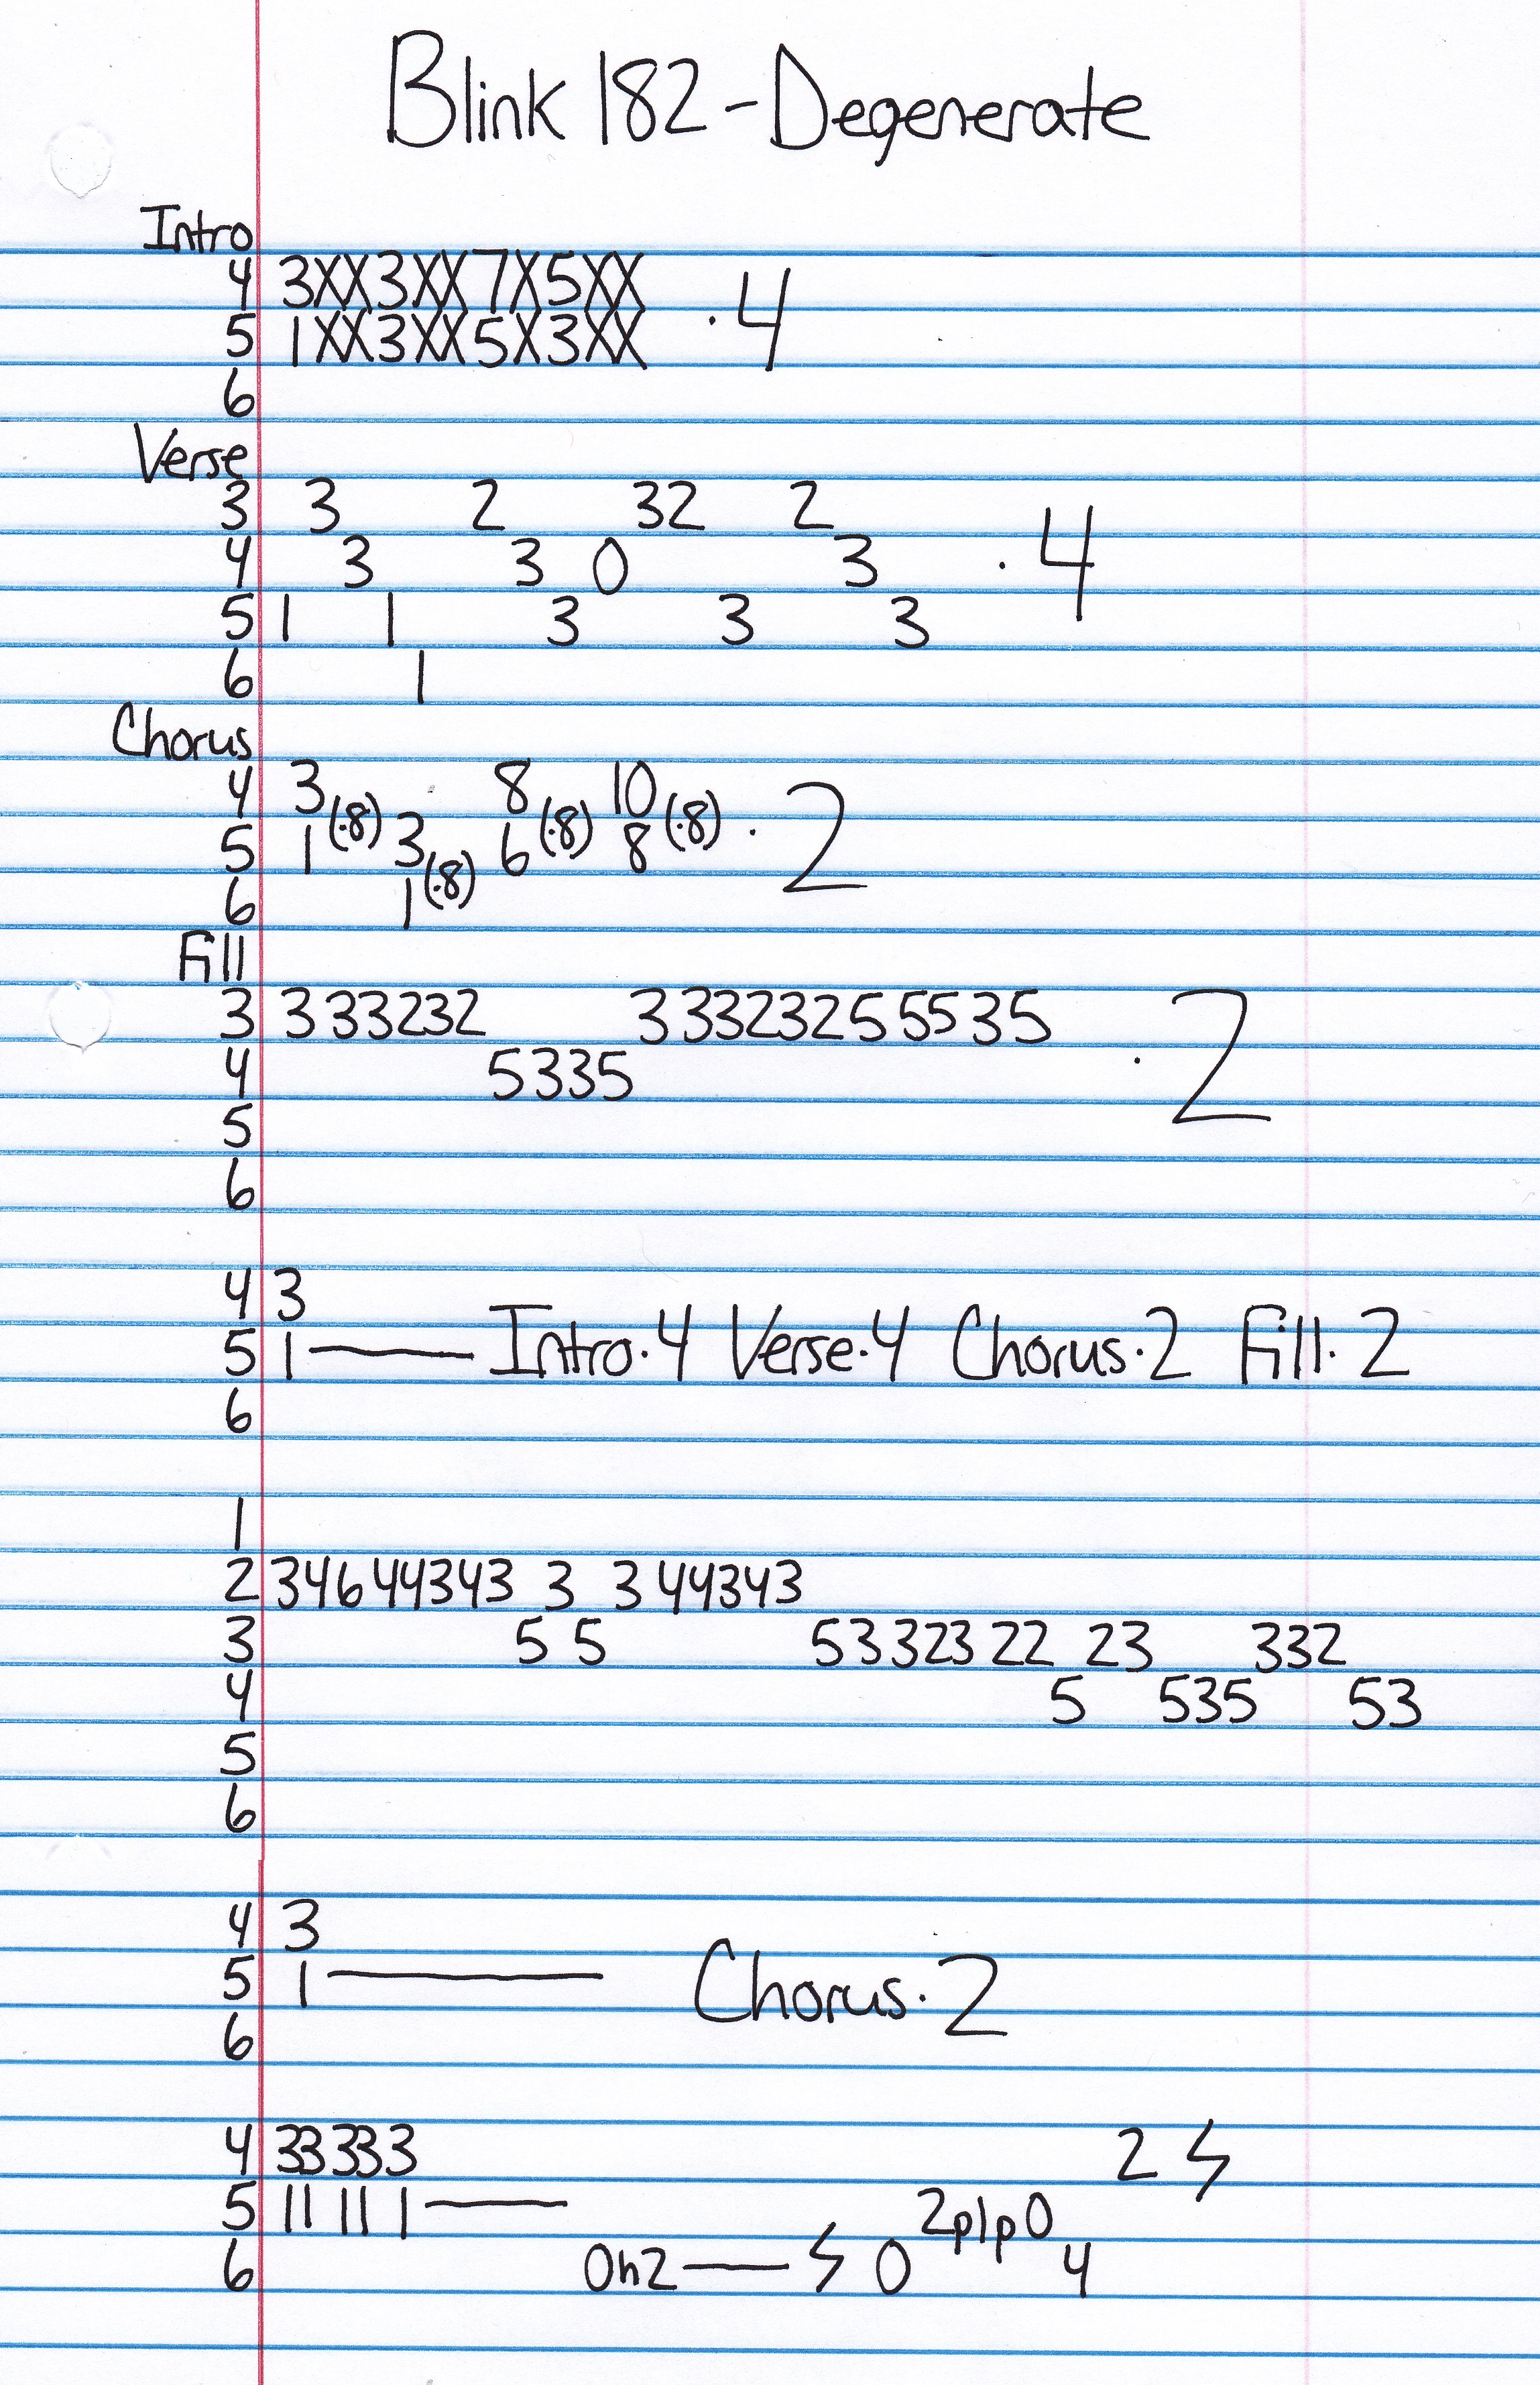 Blink 182 - Degenerate
Intro
4 3XX3XX7X5XX
5 1XX3XX5X3XX ·4
6
Verse
3 3 2 32 2
4 3 3 0 3 ·4
5 1 1 3 3 3
6 1
Chorus
4 3 8 10
(·8) (·8) (·8) ·2
5 1 3 6 8
(·8)
6 1
Fill
3 3 33232 3 33323255535
4 5335 ·2
5
6
4 3
5 1 — Intro·4 Verse·4 Chorus·2 Fill·2
6
1
2 34644343 3 3 44343
3 5 5 53323 22 23 332
4 5 535 53
5
6
4 3
5 1 — Chorus·2
6
4 33333 2
5 11 11 1 — 2p1p0
6 0h2 — 0 4